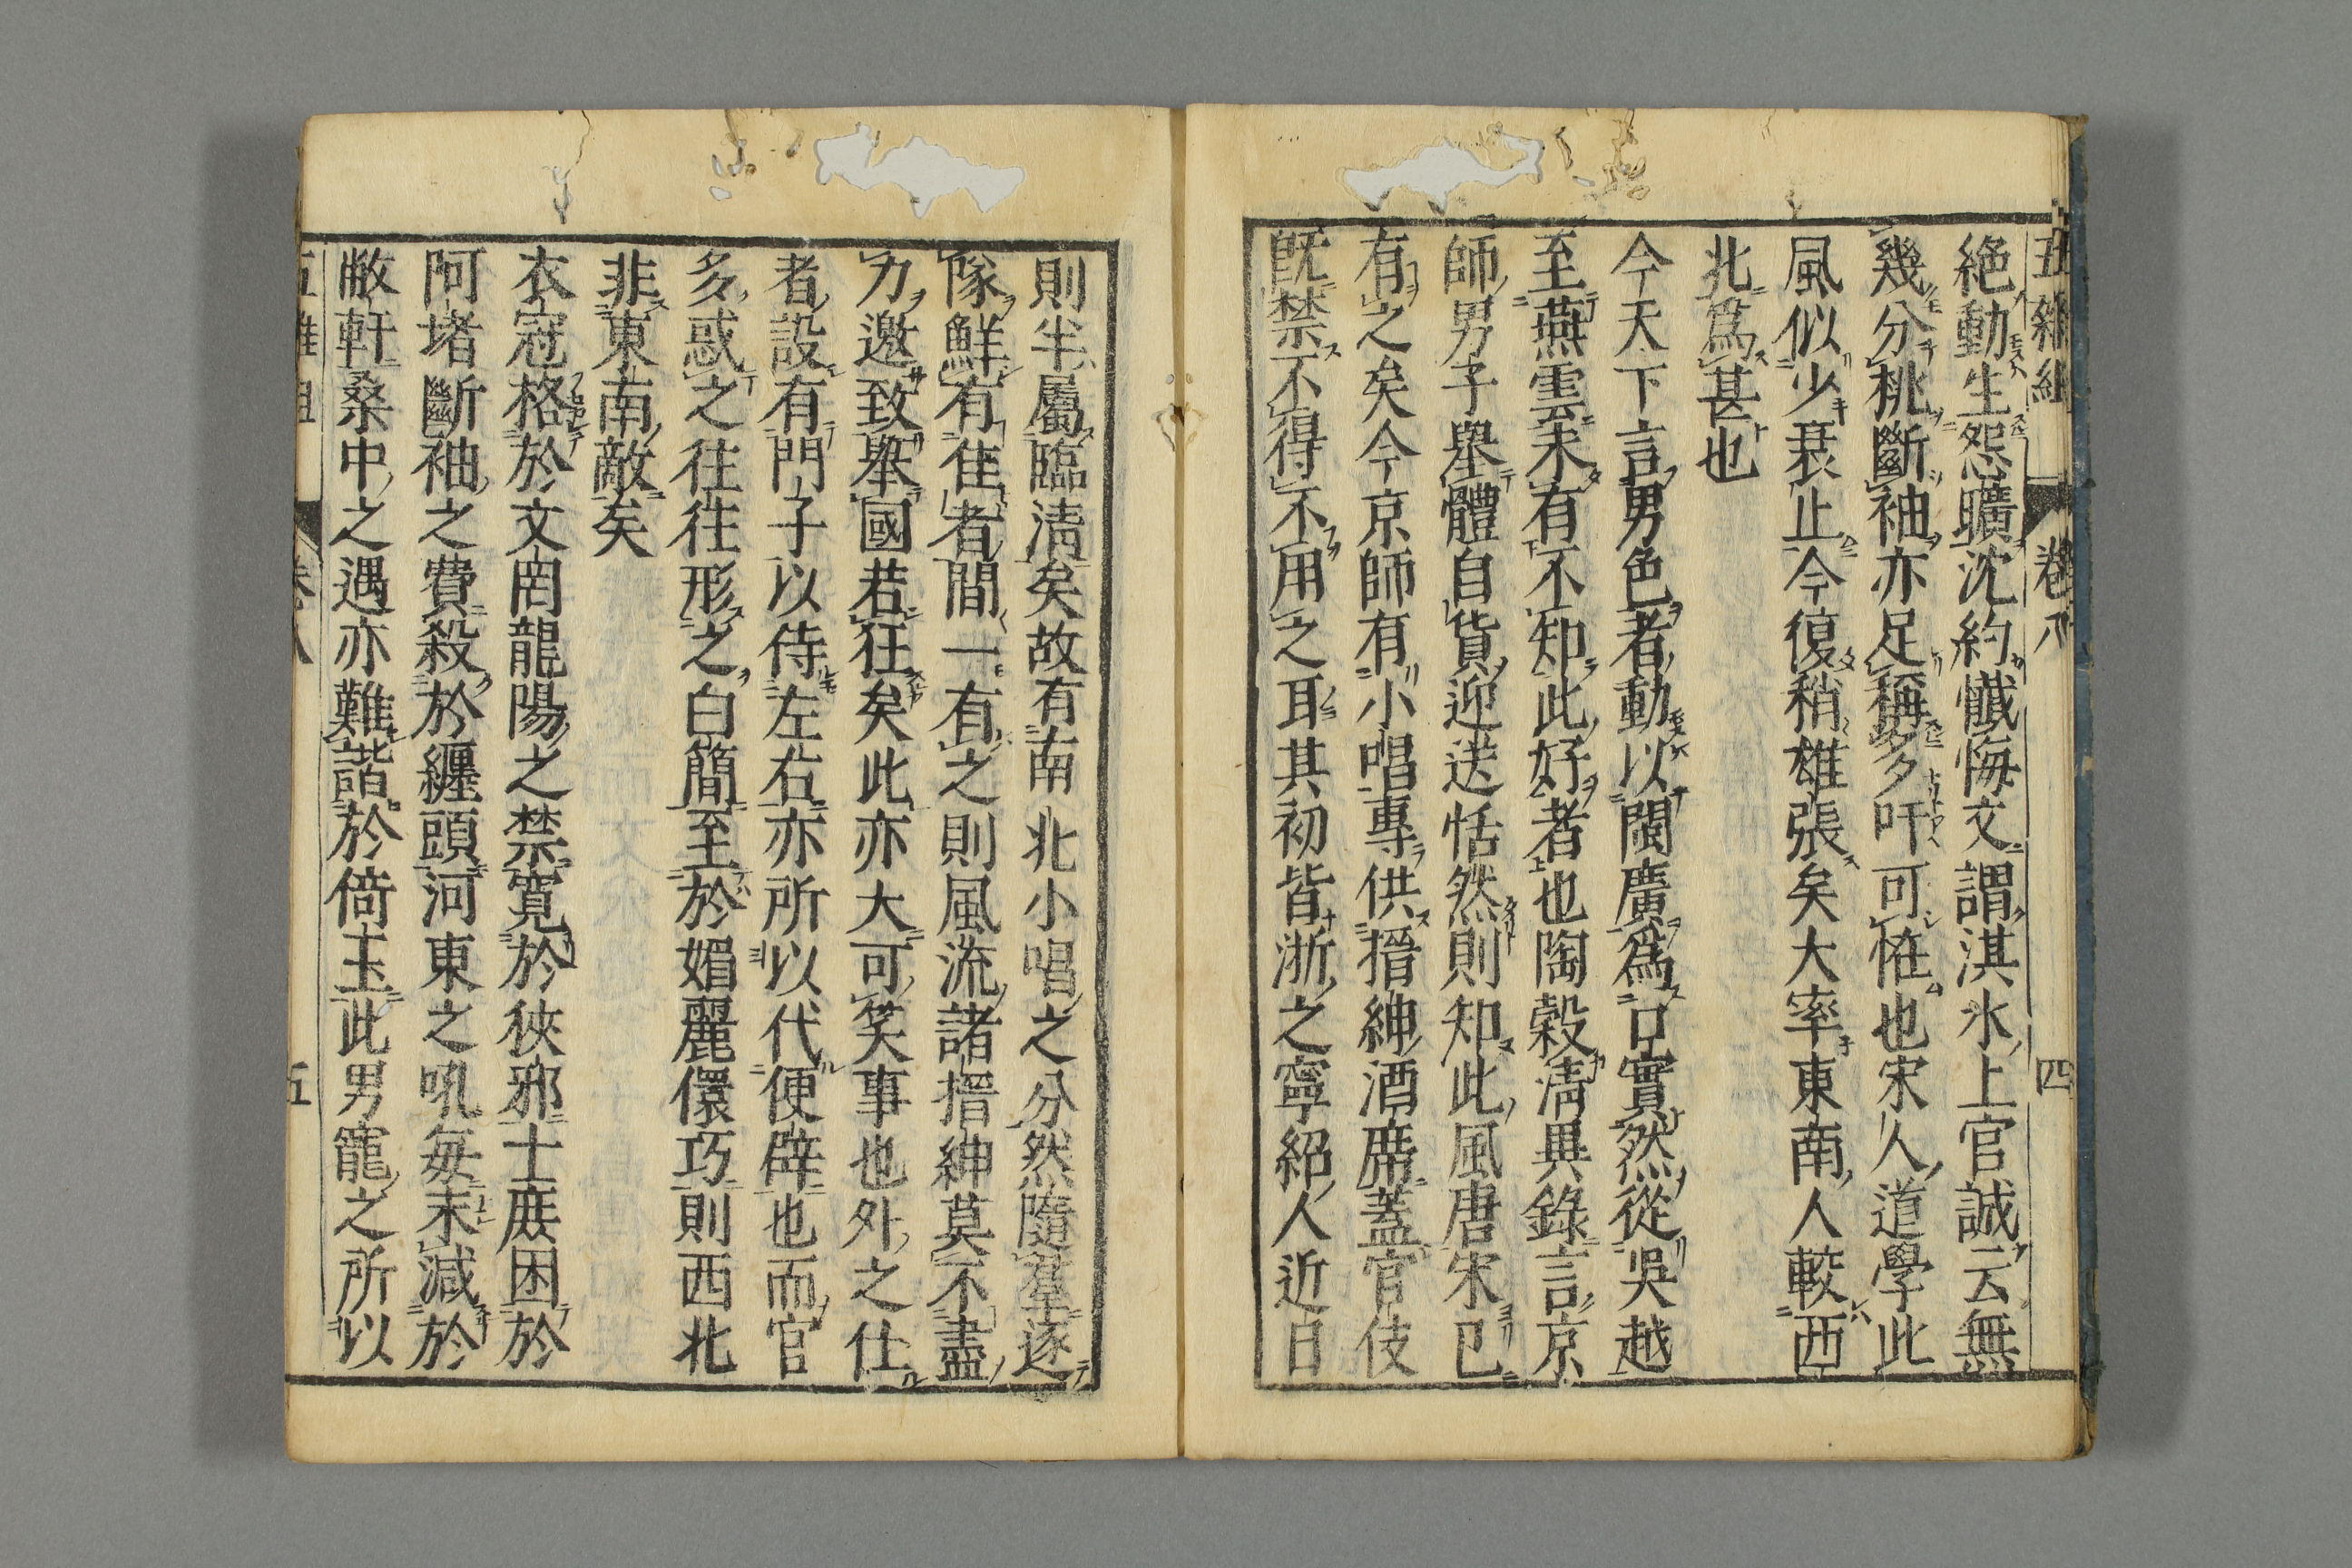 五雜組 卷八 四
絶動生怨曠沈約懺悔文謂淇水上官誠云無
幾分桃斷袖亦足稱多吁可恠也宋人道學此
風似少衰止今復稍雄張矣大率東南人較西
北爲甚也
今天下言男色者動以閩廣爲口實然從吳越
至燕雲未有不知此好者也陶穀淸異錄言京
師男子舉體自貨迎送恬然則知此風唐宋已
有之矣今京師有小唱專供搢紳酒席蓋官伎
旣禁不得不用之耳其初皆浙之寧紹人近日
則半屬臨淸矣故有南北小唱之分然隨羣逐
隊鮮有佳者間一有之則風流諸搢紳莫不盡
力邀致舉國若狂矣此亦大可笑事也外之仕
者設有門子以侍左右亦所以代便辟也而官
多惑之往往形之白簡至於媚麗儇巧則西北
非東南敵矣
衣冠格於文罔龍陽之禁寬於狹邪士庶困於
阿堵斷袖之費殺於纏頭河東之吼每末減於
敝軒桑中之遇亦難諧於倚玉此男寵之所以
五雜組 卷八 五